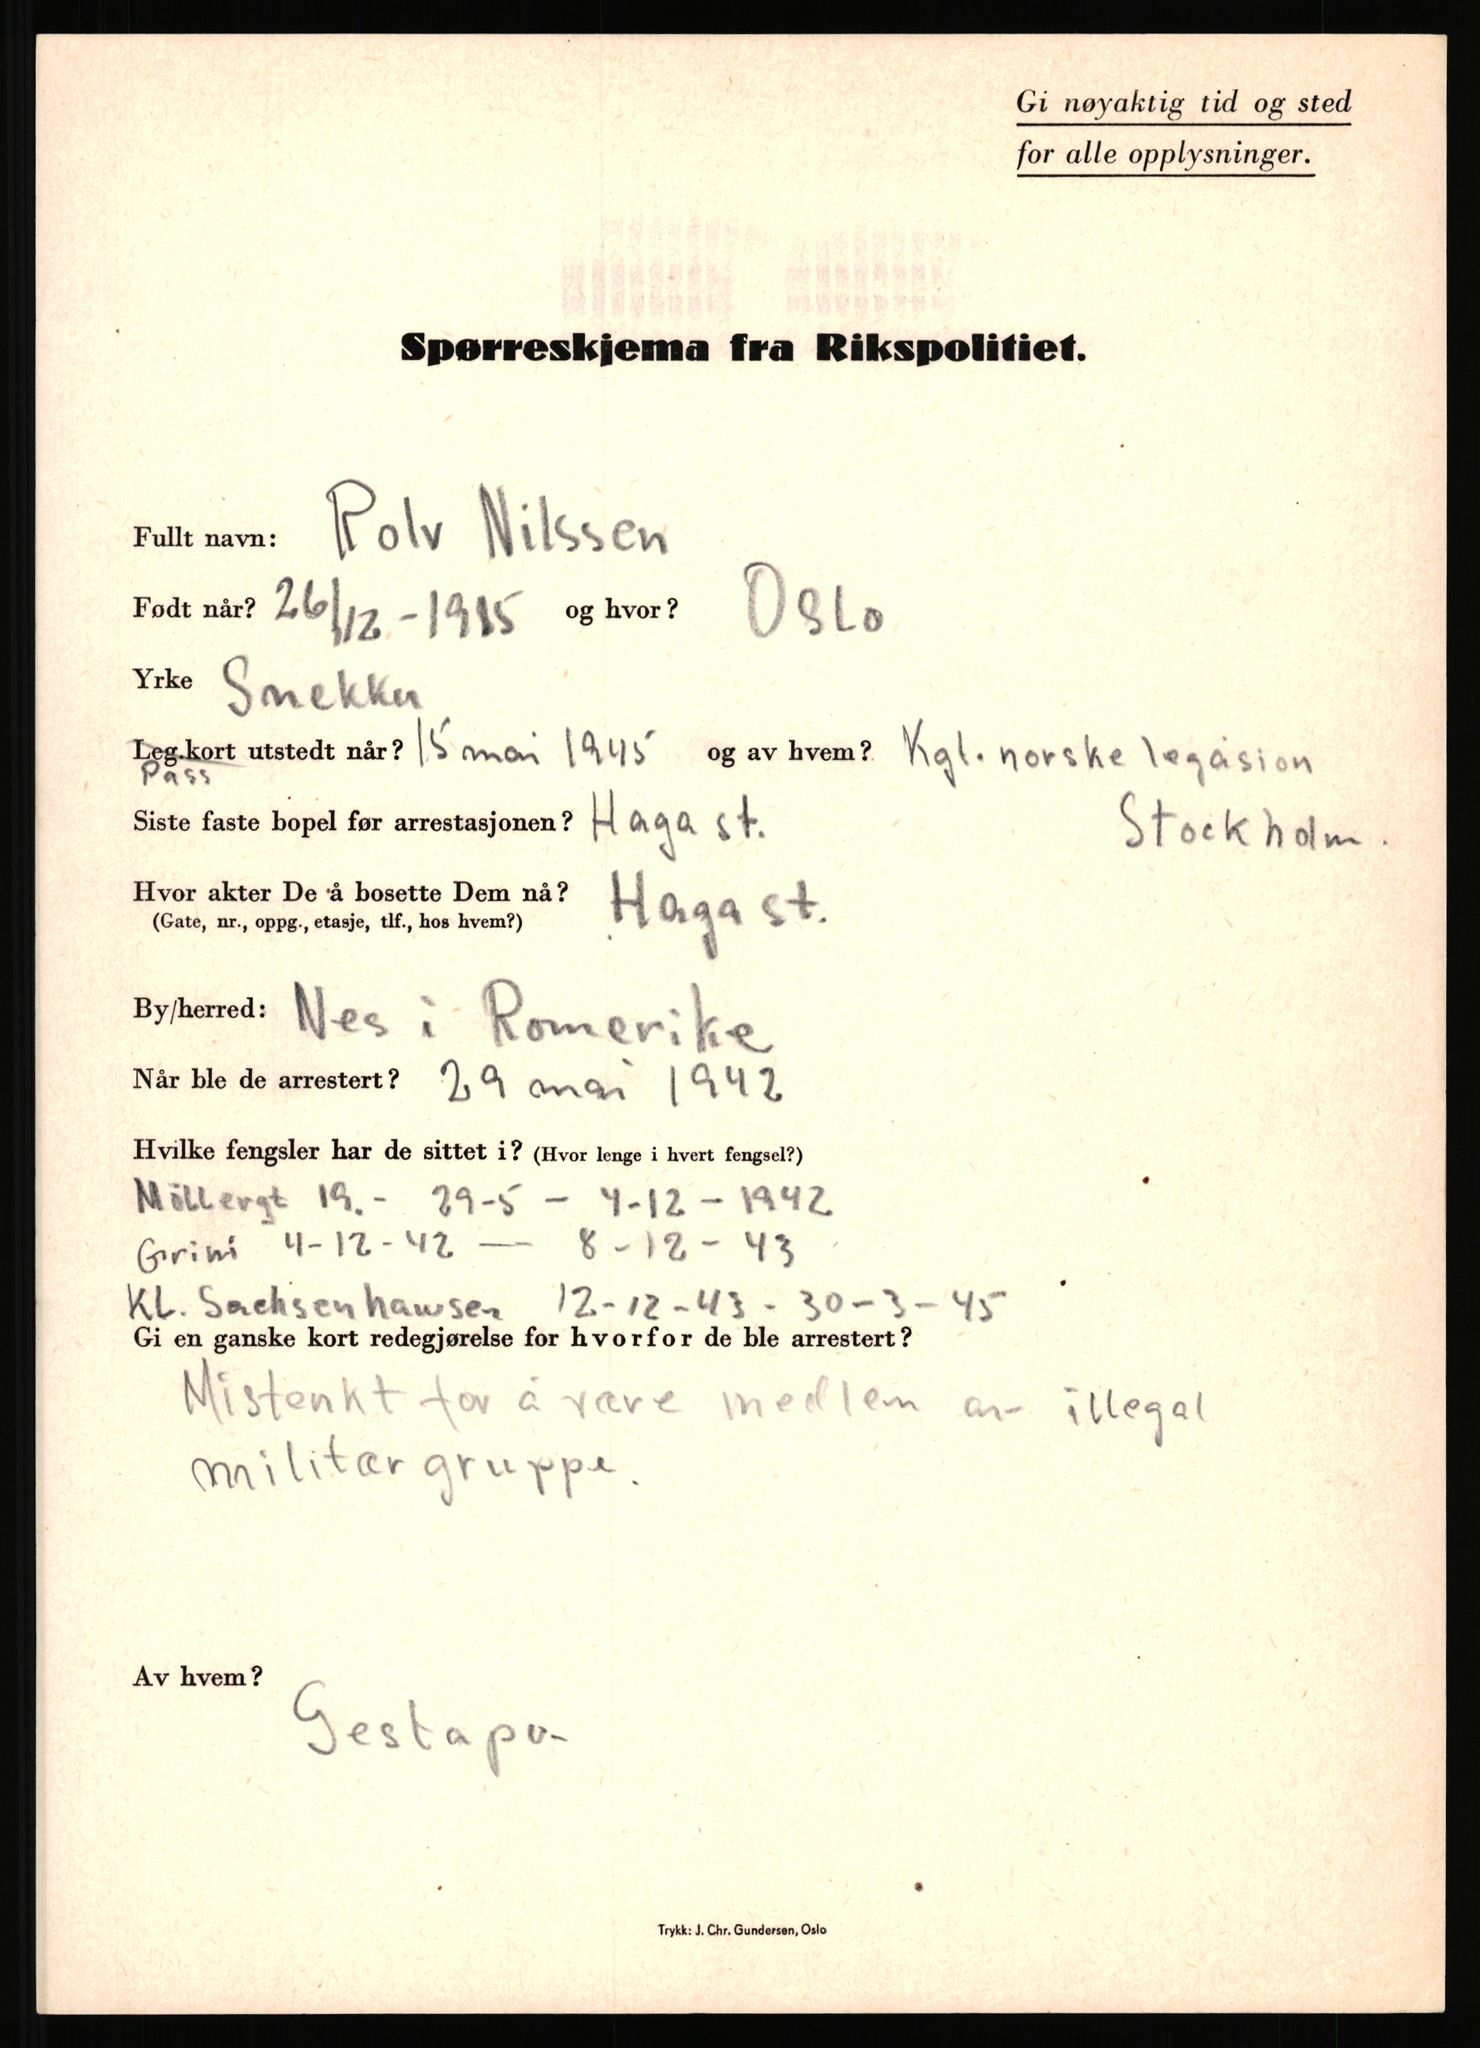 Gi nøyaktig tid og sted
for alle opplysninger.
Spørreskjema fra Rikspolitiet.
Fullt navn: Rolv Nilssen
Født når? 26/12 - 1915 og hvor? Oslo
Yrke Snekker
Leg.kort utstedt når? 15 mai 1945 og av hvem? Kgl. norske legasion
Pass
Siste faste bopel før arrestasjonen? Haga st. Stockholm.
Hvor akter De å bosette Dem nå? Haga st.
(Gate, nr., oppg., etasje, tlf., hos hvem?)
By/herred: Nes i Romerike
Når ble de arrestert? 29 mai 1942
Hvilke fengsler har de sittet i? (Hvor lenge i hvert fengsel?)
Möllergt 19. - 29-5 - 4-12 - 1942
Grini 4-12-42 — 8-12-43
KL. Sachsenhausen 12-12-43 - 30-3-45
Gi en ganske kort redegjørelse for hvorfor de ble arrestert?
Mistenkt for å være medlem av illegal
militærgruppe.
Av hvem?
Gestapo-
Trykk: J. Chr. Gundersen, Oslo